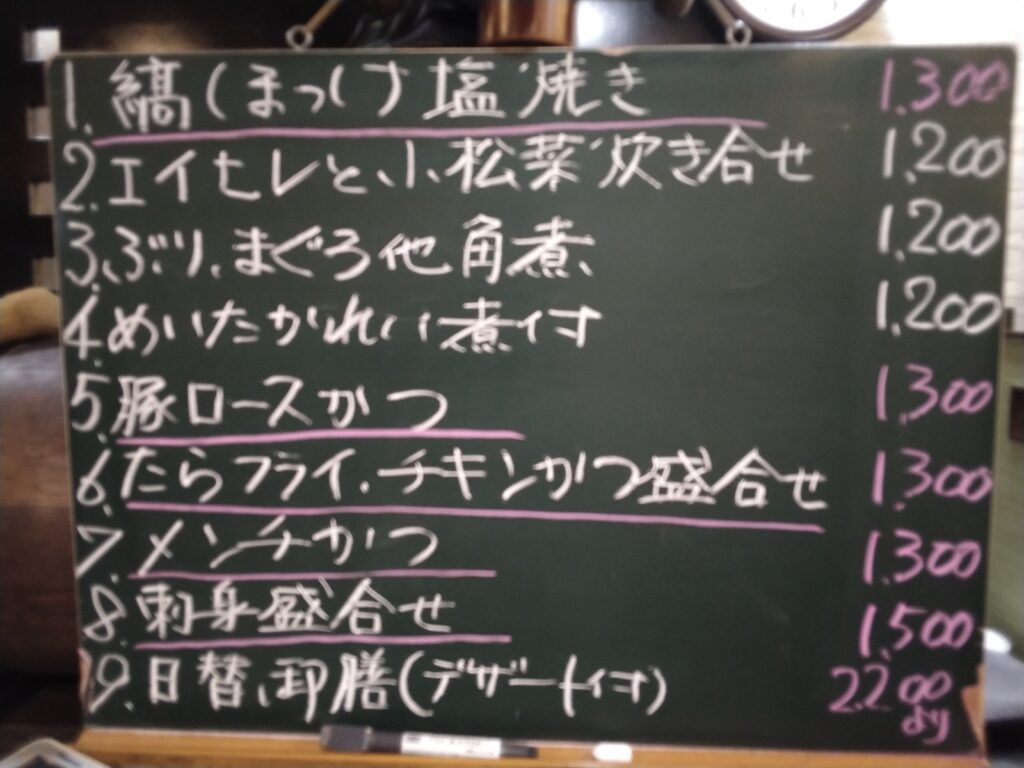 1. 縞(ほっけ)塩焼き 1,300
2. エイヒレと小松菜炊き合せ 1,200
3. ぶり、まぐろ他角煮 1,200
4. めいたかれい煮付 1,200
5. 豚ロースかつ 1,300
6. たらフライ、チキンかつ盛合せ 1,300
7. メンチかつ 1,300
8. 刺身盛合せ 1,500
9. 日替御膳(デザート付) 2,200
より